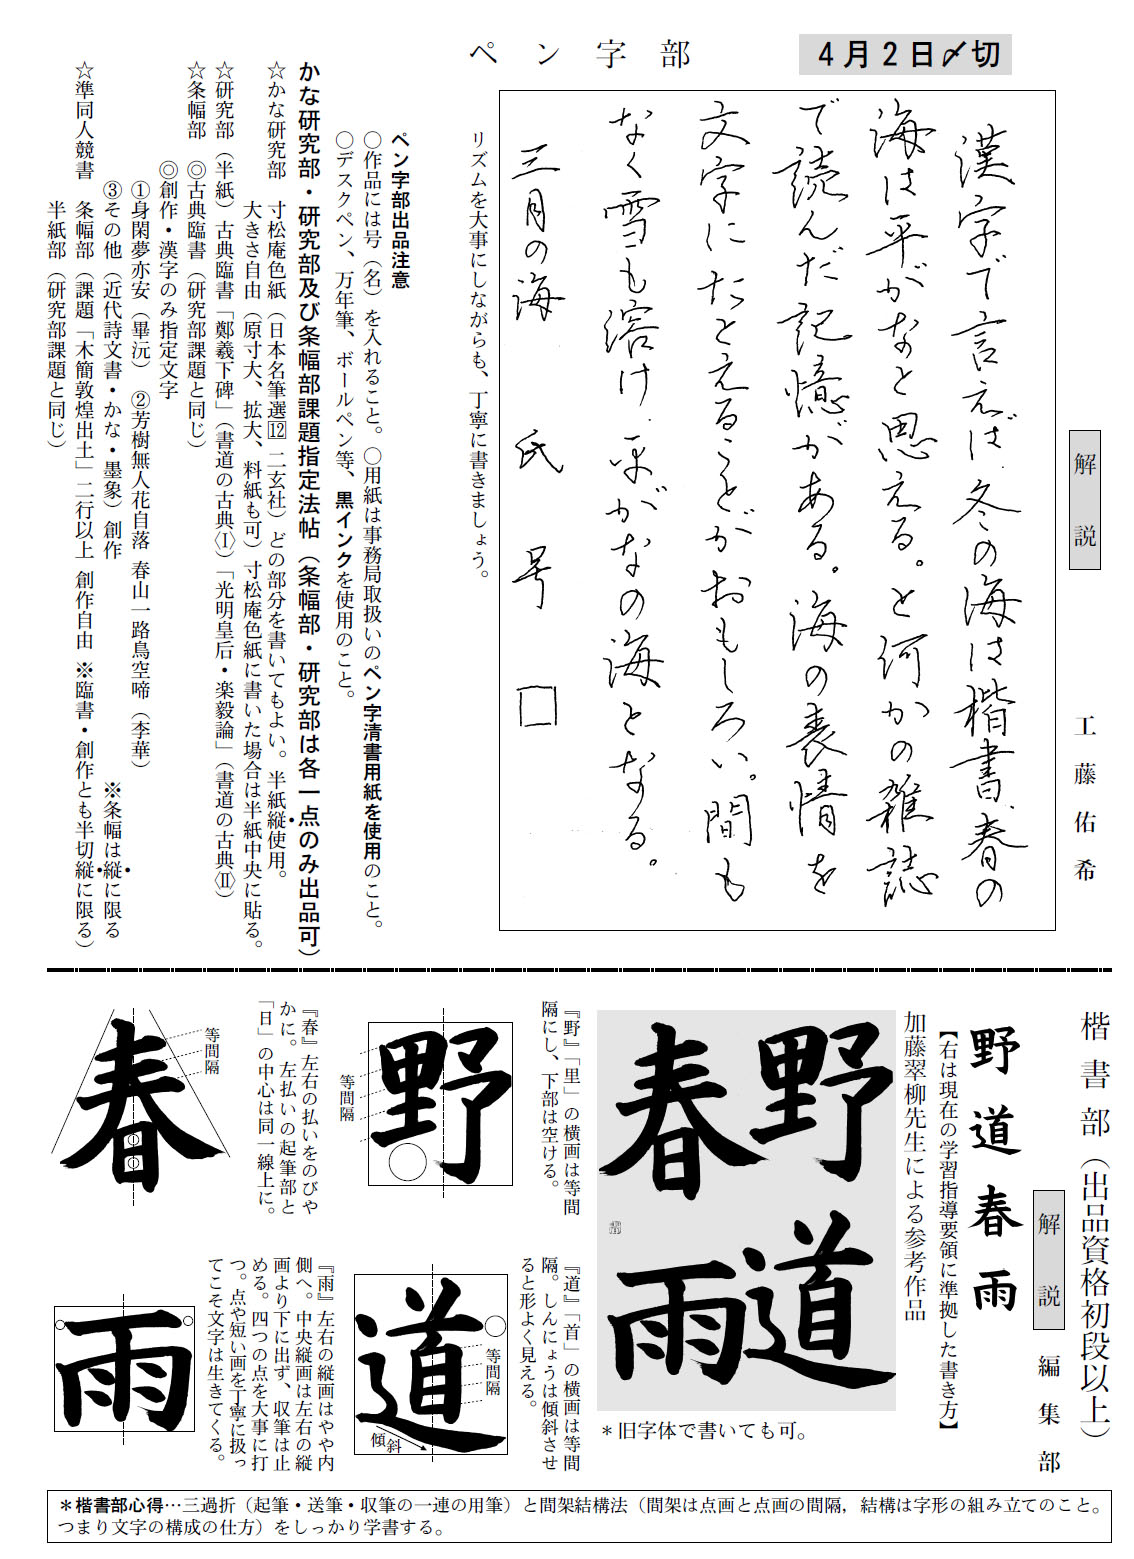 ペン字部
4月2日〆切
解説
工藤佑希
漢字で言えば、冬の海は楷書、春の
海は平がなと思える。と何かの雑誌
で読んだ記憶がある。海の表情を
文字にたとえることがおもしろい。間も
なく雪も溶け、平がなの海となる。
三月の海　氏　号　□
リズムを大事にしながらも、丁寧に書きましょう。
ペン字部出品注意
〇作品には号（名）を入れること。〇用紙は事務局取扱いのペン字清書用紙を使用のこと。
〇デスクペン、万年筆、ボールペン等、黒インクを使用のこと。
かな研究部・研究部及び条幅部課題指定法帖（条幅部・研究部は各一点のみ出品可）
☆かな研究部　寸松庵色紙（日本名筆選12 二玄社）どの部分を書いてもよい。半紙縦使用。
大きさ自由（原寸大、拡大、料紙も可）寸松庵色紙に書いた場合は半紙中央に貼る。
☆研究部（半紙）古典臨書「鄭羲下碑」（書道の古典〈Ⅰ〉）「光明皇后・楽毅論」（書道の古典〈Ⅱ〉）
☆条幅部　◎古典臨書（研究部課題と同じ）
◎創作・漢字のみ指定文字
①身閑夢亦安（畢沅）　②芳樹無人花自落　春山一路鳥空啼（李華）
③その他（近代詩文書・かな・墨象）創作　※条幅は縦に限る
☆準同人競書　条幅部（課題「木簡敦煌出土」二行以上　創作自由　※臨書・創作とも半切縦に限る）
半紙部（研究部課題と同じ）
楷書部（出品資格初段以上）
解説
編集部
野道春雨
【右は現在の学習指導要領に準拠した書き方】
加藤翠柳先生による参考作品
野道
春雨
＊旧字体で書いても可。
『野』「里」の横画は等間
隔にし、下部は空ける。
野
等間隔
『春』左右の払いをのびや
かに。左払いの起筆部と
「日」の中心は同一線上に。
等間隔
春
『道』「首」の横画は等間
隔。しんにょうは傾斜させ
ると形よく見える。
道
等間隔
傾斜
『雨』左右の縦画はやや内
側へ。中央縦画は左右の縦
画より下に出ず、収筆は止
める。四つの点を大事に打
つ。点や短い画を丁寧に扱っ
てこそ文字は生きてくる。
雨
＊楷書部心得…三過折（起筆・送筆・収筆の一連の用筆）と間架結構法（間架は点画と点画の間隔，結構は字形の組み立てのこと。
つまり文字の構成の仕方）をしっかり学書する。